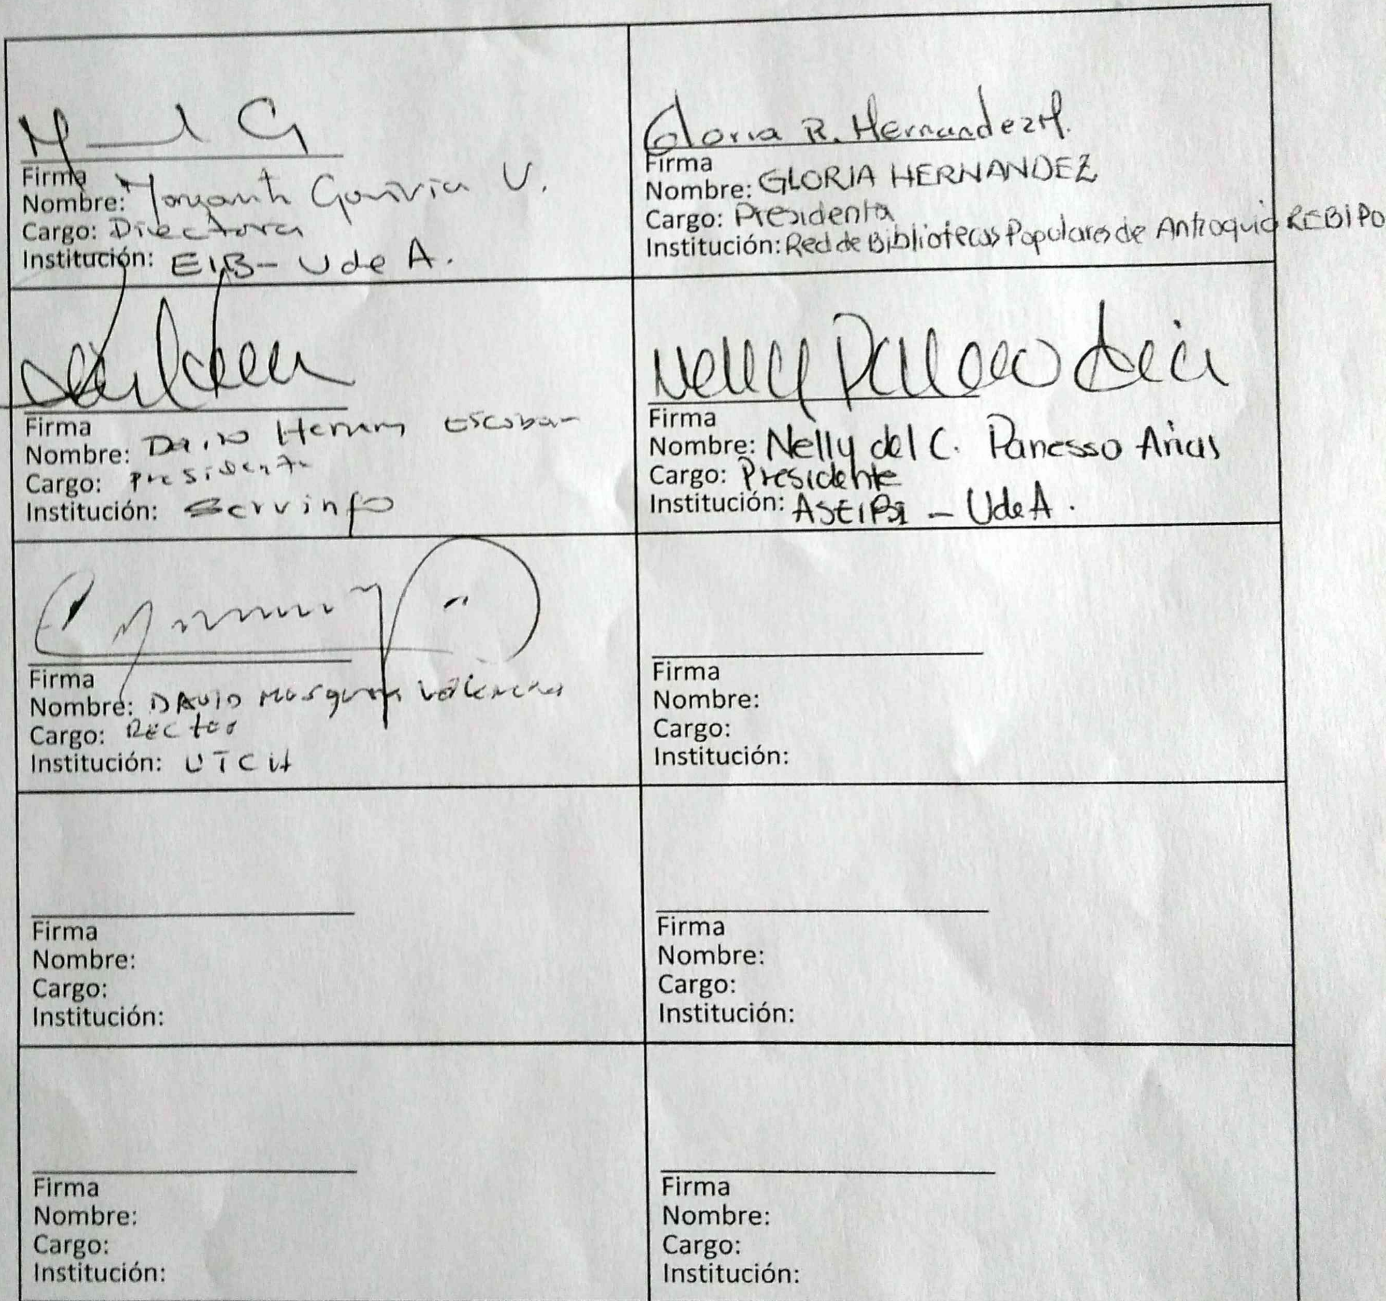 Firma
Nombre: Gaviria V.
Cargo: Directora
Institución: EIB - UdeA.
Gloria R. Hernandez H.
Firma
Nombre: GLORIA HERNANDEZ
Cargo: Presidenta
Institución: Red de Bibliotecas Populares de Antioquia REBIPO
Firma
Nombre: Hernan Escobar
Cargo: Presidente
Institución: Servinfo
Nelly Panesso Arias
Firma
Nombre: Nelly del C. Panesso Arias
Cargo: Presidente
Institución: ASEIBI - UdeA.
Firma
Nombre: DAVID Mosquera Valencia
Cargo: Rector
Institución: UTCH
Firma
Nombre:
Cargo:
Institución:
Firma
Nombre:
Cargo:
Institución:
Firma
Nombre:
Cargo:
Institución:
Firma
Nombre:
Cargo:
Institución:
Firma
Nombre:
Cargo:
Institución: